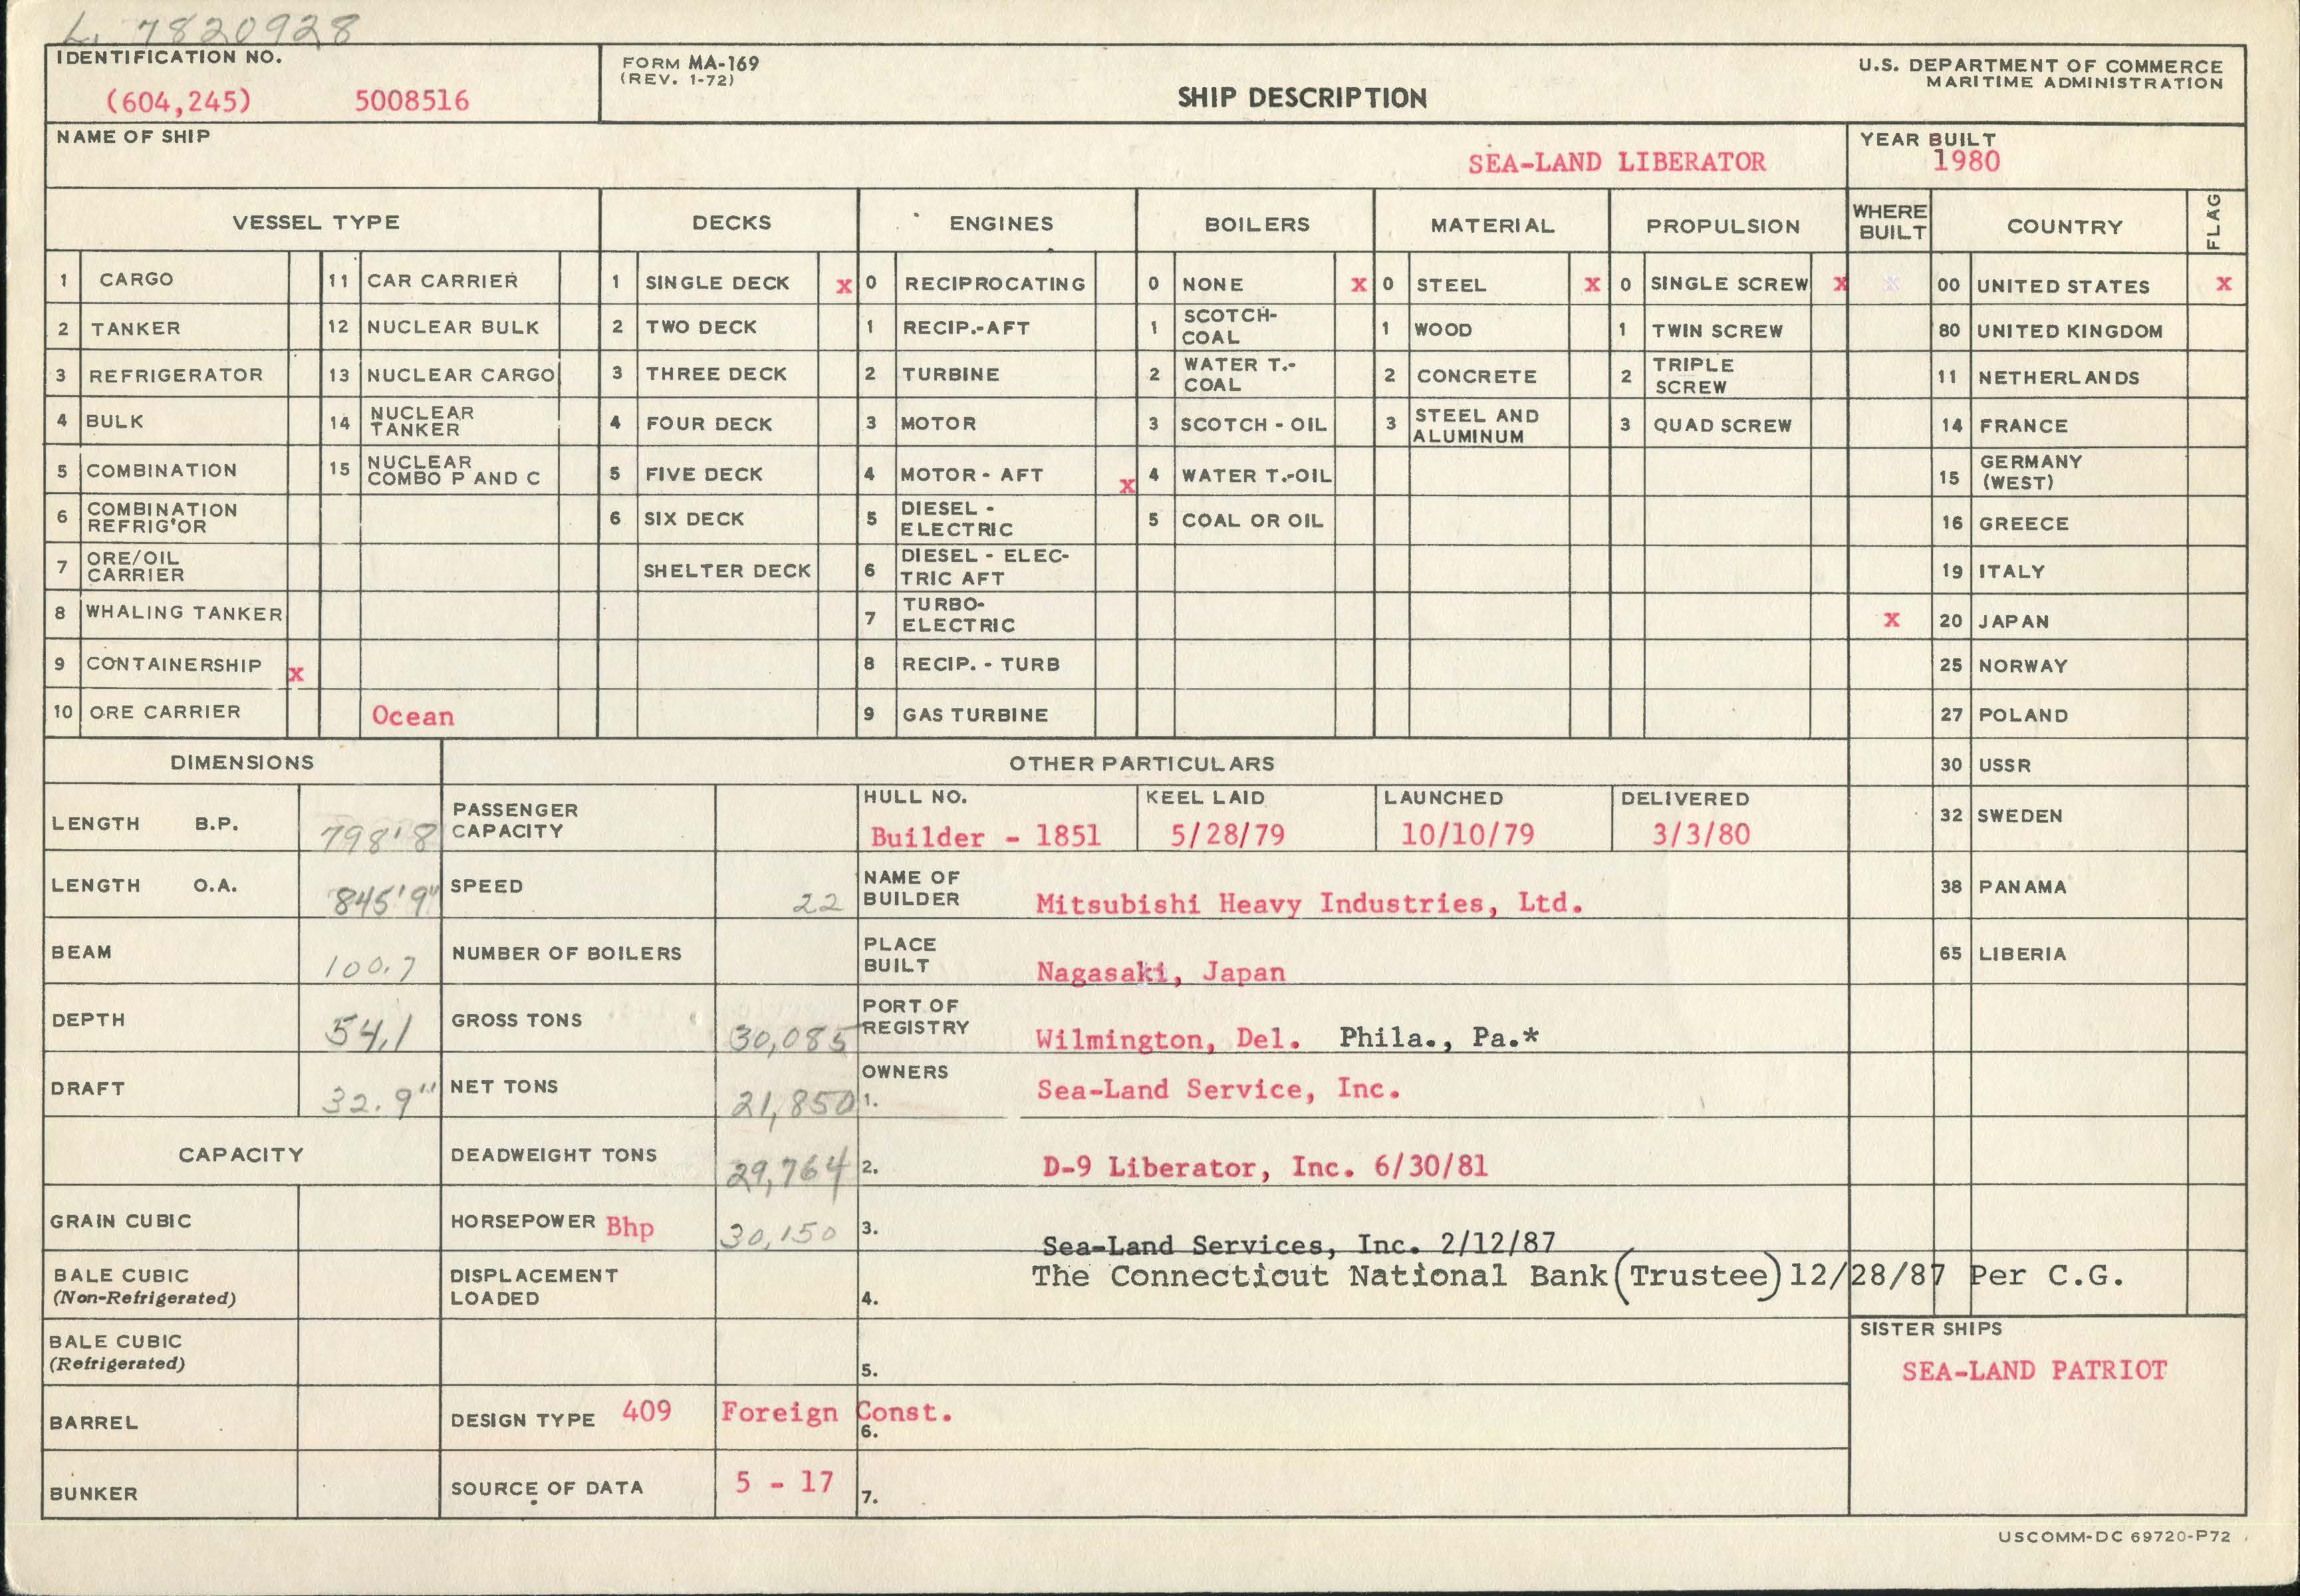 L. 7820928
IDENTIFICATION NO.
(604,245) 5008516
FORM MA-169
(REV. 1-72)
SHIP DESCRIPTION
U.S. DEPARTMENT OF COMMERCE
MARITIME ADMINISTRATION
NAME OF SHIP
SEA-LAND LIBERATOR
YEAR BUILT
1980
VESSEL TYPE DECKS ENGINES BOILERS MATERIAL PROPULSION WHERE BUILT COUNTRY FLAG
1 CARGO 11 CAR CARRIER 1 SINGLE DECK x 0 RECIPROCATING 0 NONE x 0 STEEL x 0 SINGLE SCREW x 00 UNITED STATES x
2 TANKER 12 NUCLEAR BULK 2 TWO DECK 1 RECIP.-AFT 1 SCOTCH-COAL 1 WOOD 1 TWIN SCREW 80 UNITED KINGDOM
3 REFRIGERATOR 13 NUCLEAR CARGO 3 THREE DECK 2 TURBINE 2 WATER T.-COAL 2 CONCRETE 2 TRIPLE SCREW 11 NETHERLANDS
4 BULK 14 NUCLEAR TANKER 4 FOUR DECK 3 MOTOR 3 SCOTCH - OIL 3 STEEL AND ALUMINUM 3 QUAD SCREW 14 FRANCE
5 COMBINATION 15 NUCLEAR COMBO P AND C 5 FIVE DECK 4 MOTOR - AFT x 4 WATER T.-OIL 15 GERMANY (WEST)
6 COMBINATION REFRIG'OR 6 SIX DECK 5 DIESEL - ELECTRIC 5 COAL OR OIL 16 GREECE
7 ORE/OIL CARRIER SHELTER DECK 6 DIESEL - ELEC-TRIC AFT 19 ITALY
8 WHALING TANKER 7 TURBO-ELECTRIC x 20 JAPAN
9 CONTAINERSHIP x 8 RECIP. - TURB 25 NORWAY
10 ORE CARRIER Ocean 9 GAS TURBINE 27 POLAND
DIMENSIONS OTHER PARTICULARS 30 USSR
LENGTH B.P. 798'8 PASSENGER CAPACITY HULL NO. Builder - 1851 KEEL LAID 5/28/79 LAUNCHED 10/10/79 DELIVERED 3/3/80 32 SWEDEN
LENGTH O.A. 845'9" SPEED 22 NAME OF BUILDER Mitsubishi Heavy Industries, Ltd. 38 PANAMA
BEAM 100.7 NUMBER OF BOILERS PLACE BUILT Nagasaki, Japan 65 LIBERIA
DEPTH 54.1 GROSS TONS 30,085 PORT OF REGISTRY Wilmington, Del. Phila., Pa.*
DRAFT 32.9" NET TONS 21,850 OWNERS 1. Sea-Land Service, Inc.
CAPACITY DEADWEIGHT TONS 29,764 2. D-9 Liberator, Inc. 6/30/81
GRAIN CUBIC HORSEPOWER Bhp 30,150 3. Sea-Land Services, Inc. 2/12/87
BALE CUBIC (Non-Refrigerated) DISPLACEMENT LOADED 4. The Connecticut National Bank (Trustee) 12/28/87 Per C.G.
BALE CUBIC (Refrigerated) 5.
SISTER SHIPS
SEA-LAND PATRIOT
BARREL DESIGN TYPE 409 Foreign Const. 6.
BUNKER SOURCE OF DATA 5 - 17 7.
USCOMM-DC 69720-P72